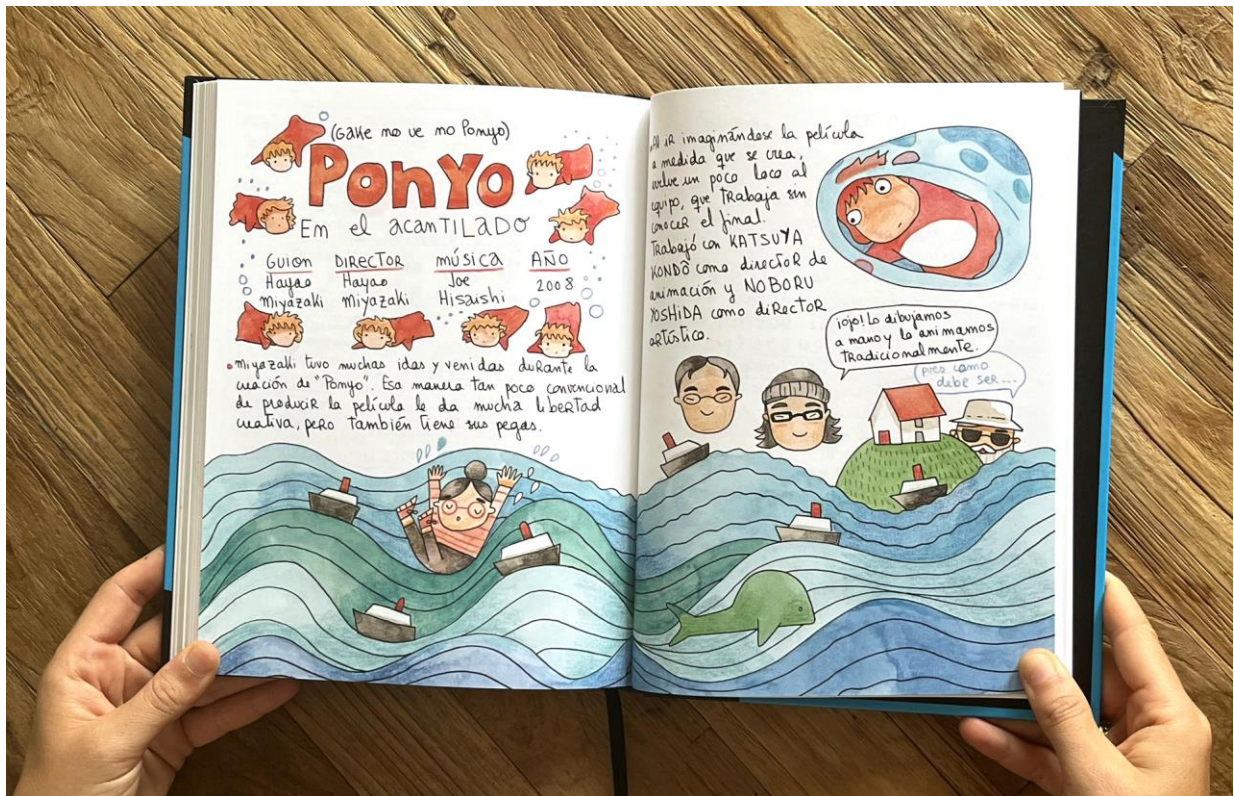 (Gake no ue no Ponyo)
PONYO
En el acantilado
GUION DIRECTOR MÚSICA AÑO
Hayao Hayao Joe 2008
Miyazaki Miyazaki Hisaishi
• Miyazaki tuvo muchas idas y venidas durante la
creación de "Ponyo". Esa manera tan poco convencional
de producir la película le da mucha libertad
creativa, pero también tiene sus pegas.
Al ir imaginándose la película
a medida que se crea,
vuelve un poco loco al
equipo, que trabaja sin
conocer el final.
Trabajó con KATSUYA
KONDŌ como director de
animación y NOBORU
YOSHIDA como director
artístico.
¡ojo! Lo dibujamos
a mano y lo animamos
tradicionalmente.
pues como
debe ser...